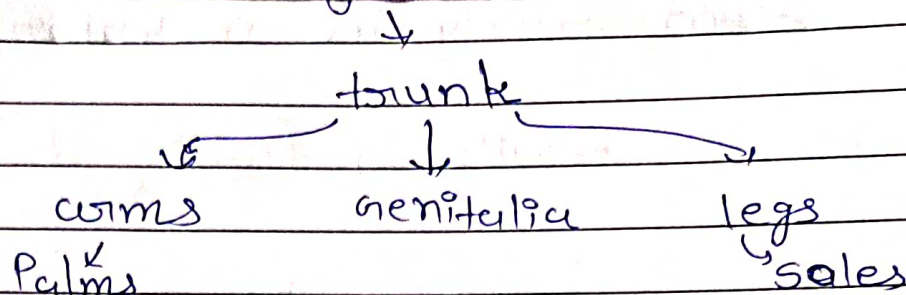 trunk
arms genitalia legs
Palms soles